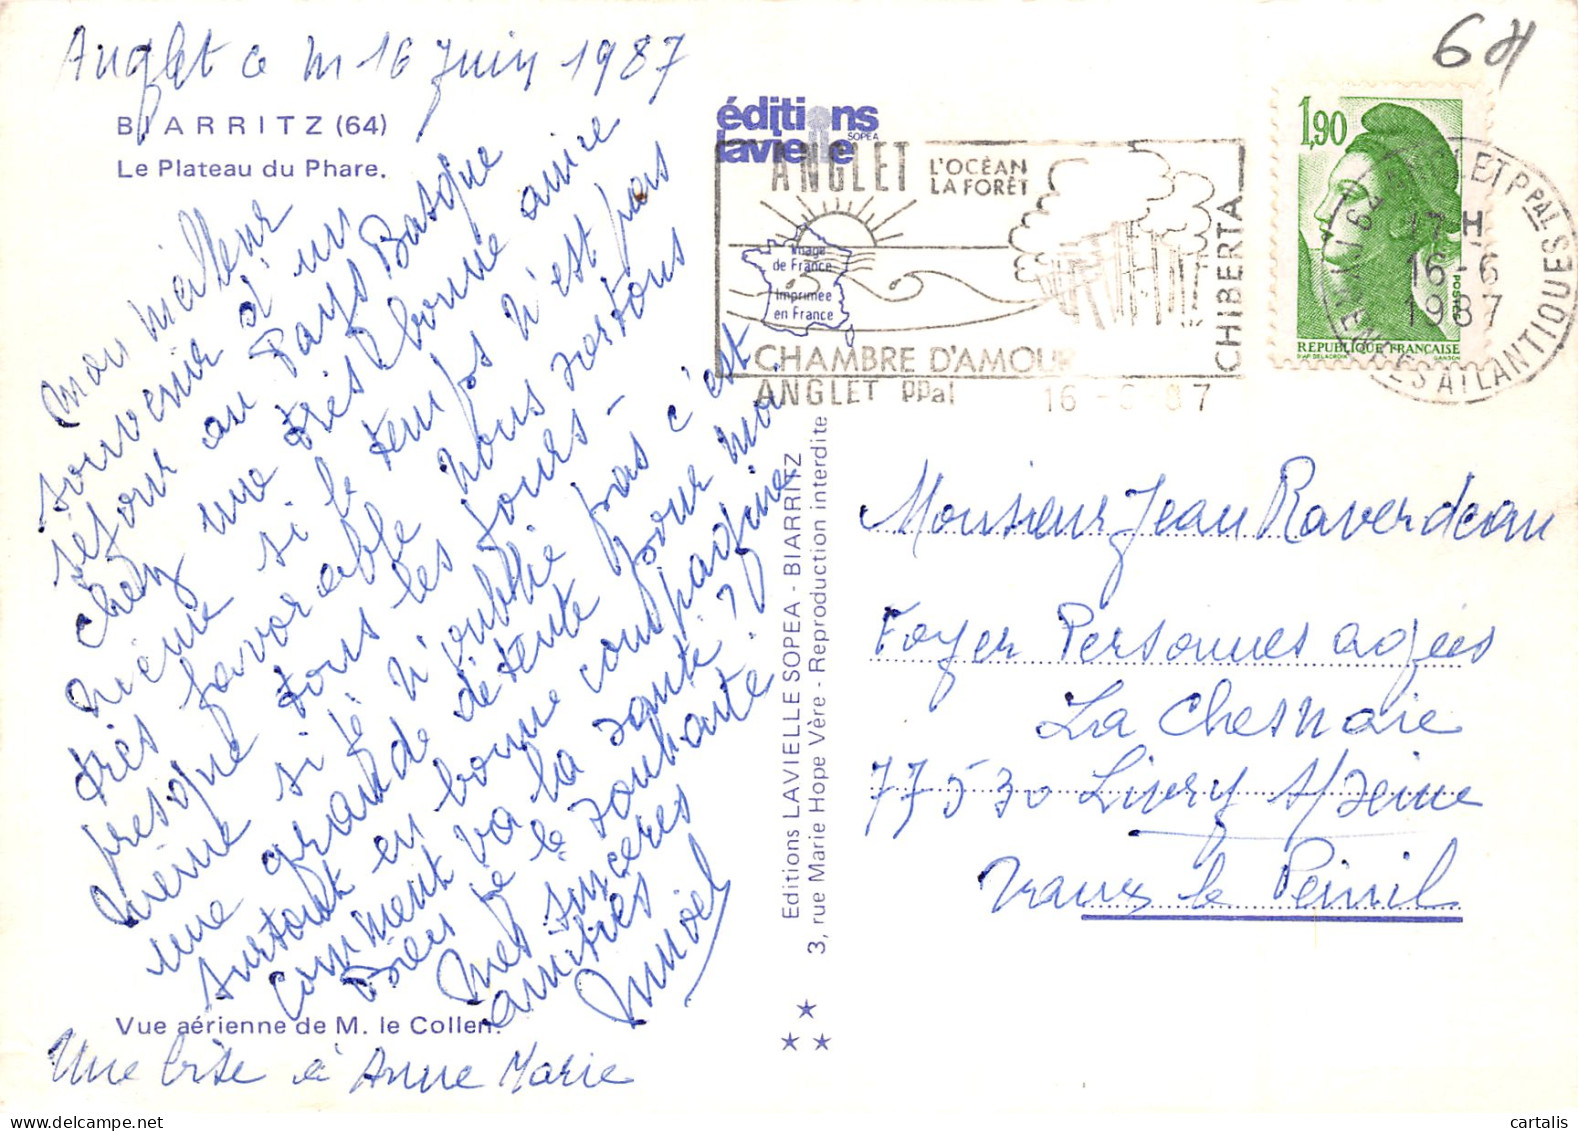 Anglet ce M 16 Juin 1987
BIARRITZ (64)
Le Plateau du Phare.
Mon meilleur
souvenir d'un
séjour au Pays Basque
chez une très bonne amie
même si le temps n'est pas
très favorable nous sortons
presque tous les jours -
même si je n'oublie pas c'est
une grande détente pour moi
surtout en bonne compagnie
comment va la santé ?
Bien je le souhaite
Mes sincères
amitiés
Vue aérienne de M. le Collen.
Une bise à Anne Marie
éditions
lavielle
SOPEA
ANGLET
L'OCÉAN
LA FORÊT
CHIBERTA
Image
de France
Imprimée
en France
CHAMBRE D'AMOU
ANGLET PPal 16 - 6 87
Editions LAVIELLE SOPEA - BIARRITZ
3, rue Marie Hope Vère - Reproduction interdite
64
1,90
POSTES
REPUBLIQUE FRANCAISE
D'AP DELACROIX GANDON
17 H
16-6
1987
ATLANTIQUES
Monsieur Jean Raverdeau
Foyer Personnes agées
La Chesnaie
77530 Livry s/seine
Vaux le Peinil
cartalis